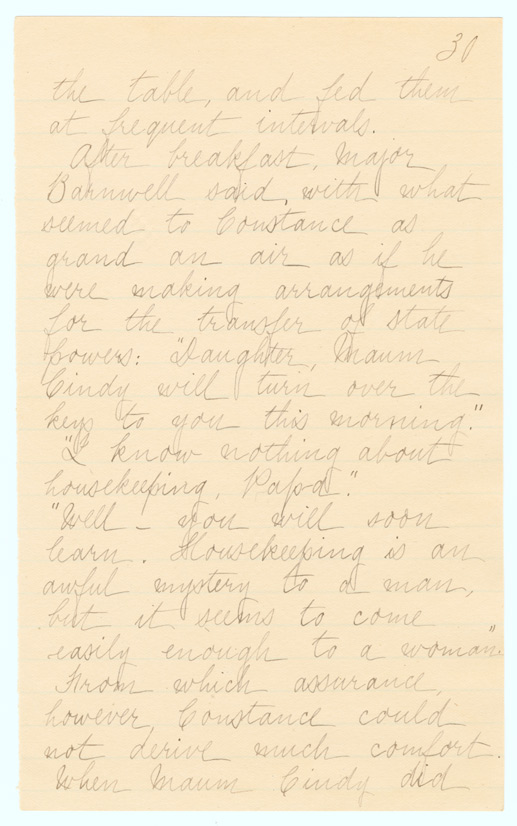 30
the table, and fed them
at frequent intervals.
After breakfast, Major
Barnwell said, with what
seemed to Constance as
grand an air as if he
were making arrangements
for the transfer of state
powers: "Daughter, Maum
Cindy will turn over the
keys to you this morning."
"I know nothing about
housekeeping, Papa."
"Well – you will soon
learn. Housekeeping is an
awful mystery to a man,
but it seems to come
easily enough to a woman."
From which assurance,
however, Constance could
not derive much comfort.
When Maum Cindy did